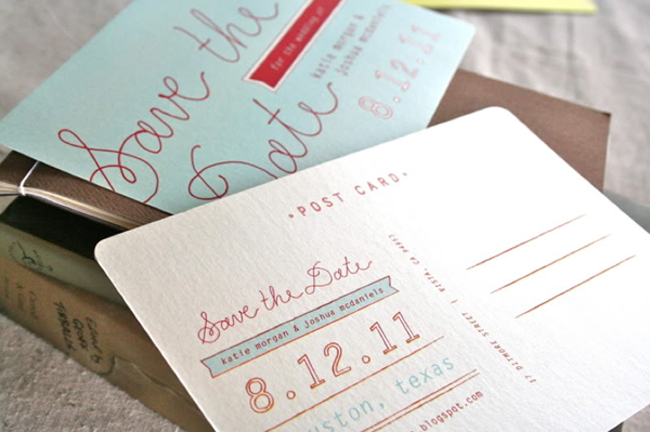 Save the
Date
for the wedding of
katie morgan &
joshua mcdaniels
8.12.11
·POST CARD·
Save the Date
katie morgan & joshua mcdaniels
8.12.11
uston, texas
blogspot.com
17 DITMORE STREET | VISTA, CA